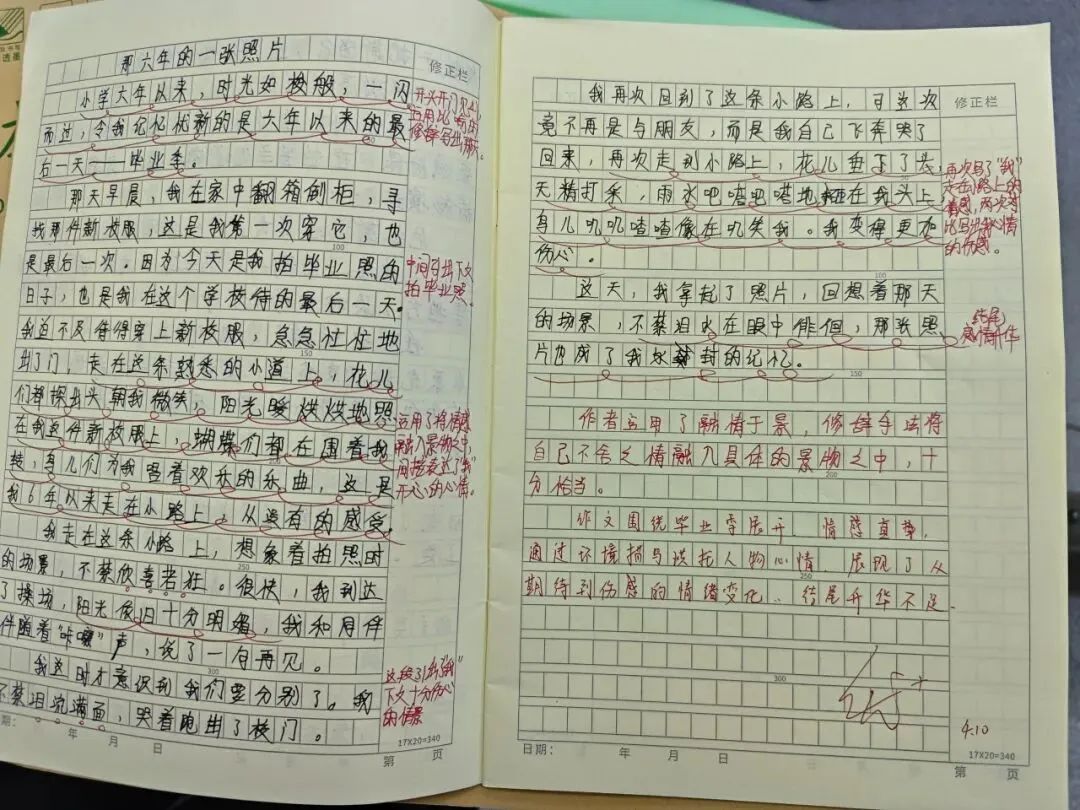 那六年的一张照片
修正栏
小学六年以来，时光如梭般，一闪
而过，令我记忆犹新的是六年以来的最
后一天——毕业季。
那天早晨，我在家中翻箱倒柜，寻
找那件新校服，这是我第一次穿它，也
100
是最后一次。因为今天是我拍毕业照的
日子，也是我在这个学校待的最后一天。
我迫不及待得穿上新校服，急急忙忙地
150
出了门，走在这条熟悉的小道上，花儿
们都探出头朝我微笑，阳光暖烘烘地照
在我这件新校服上，蝴蝶们都在围着我
转，鸟儿们为我唱着欢乐的乐曲，这是
我6年以来走在小路上，从没有的感受。
我走在这条小路上，想象着拍照时
250
的场景，不禁欣喜若狂。很快，我到达
了操场，阳光依旧十分明媚，我和同伴
伴随着“咔嚓”声，说了一句再见。
300
我这时才意识到我们要分别了。我
不禁泪流满面，哭着跑出了校门。
期：
年
月
日
17X20=340
第
页
开头开门见山
运用比喻的
修辞写出那天。
中间引出下文
拍毕业照。
运用了将情感
融入景物之中，
间接表达了“我”
开心的心情。
这段引出了“我”
下文十分伤心
的情景
修正栏
我再次回到了这条小路上，可这次
竟不再是与朋友，而是我自己飞奔哭了
回来，再次走到小路上，花儿垂下了头，
天精打采，雨水吧嗒吧嗒地砸在我头上，
鸟儿叽叽喳喳像在叽笑我。我变得更加
伤心。
100
这天，我拿起了照片，回想着那天
的场景，不禁泪水在眼中徘徊，那张照
片也成了我尘封的记忆。
150
作者运用了融情于景，修辞手法将
自己不舍之情融入具体的景物之中，十
200
分恰当。
作文围绕毕业季展开，情感真挚，
通过环境描写烘托人物心情，展现了从
250
期待到伤感的情绪变化、结尾升华不足.
300
优++
4.10
再次写了“我”
走在小路上的
情感，两次对
比写出我心情
的伤感。
结尾
感情升华
日期：
年
月
日
17X20=340
第
页